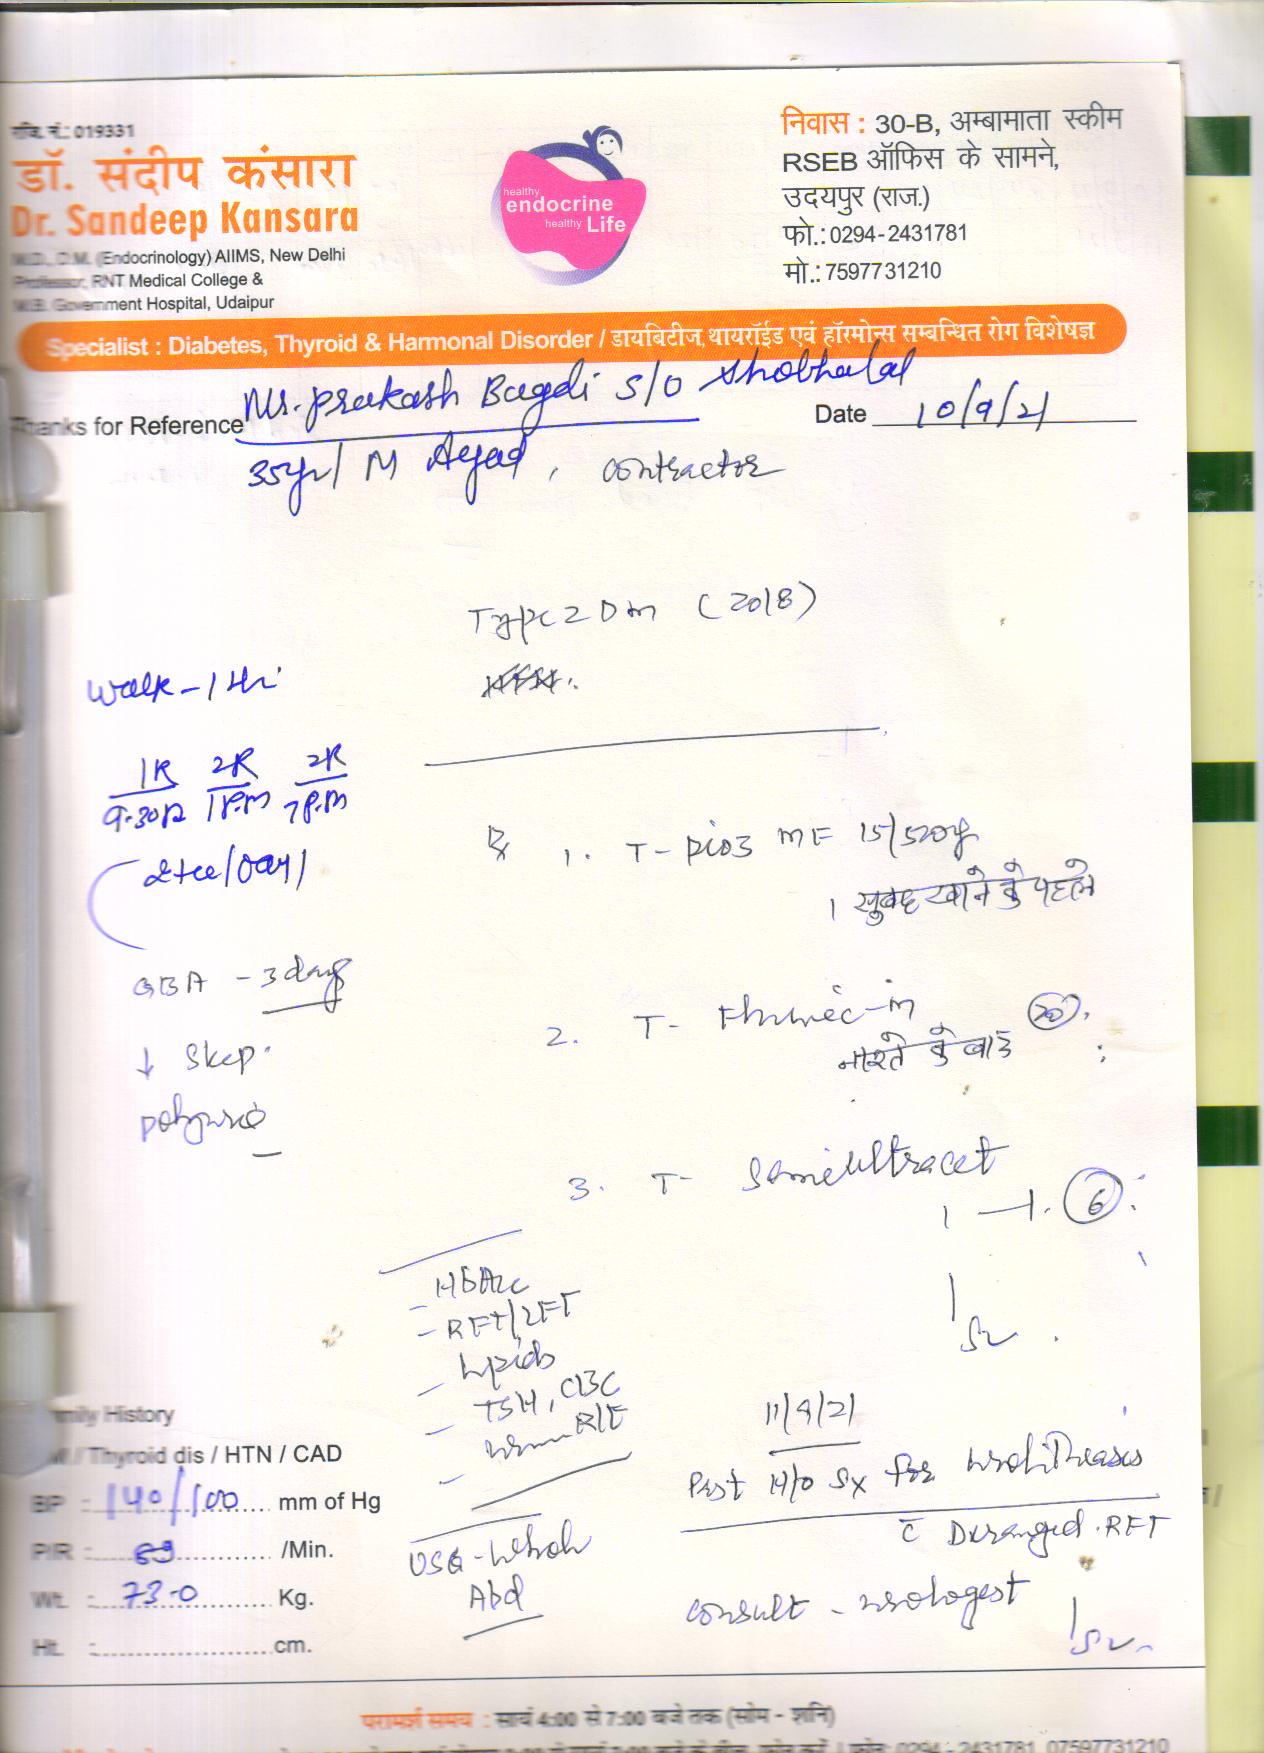 रजि. नं.: 019331
डॉ. संदीप कंसारा
Dr. Sandeep Kansara
M.D., D.M. (Endocrinology) AIIMS, New Delhi
Professor, RNT Medical College &
M.B. Government Hospital, Udaipur
healthy
endocrine
healthy Life
निवास : 30-B, अम्बामाता स्कीम
RSEB ऑफिस के सामने,
उदयपुर (राज.)
फो.: 0294-2431781
मो.: 7597731210
Specialist : Diabetes, Thyroid & Harmonal Disorder / डायबिटीज, थायरॉईड एवं हॉरमोन्स सम्बन्धित रोग विशेषज्ञ
Thanks for Reference Mr. Prakash Bagdi S/O Shobhalal
Date 10/9/21
35yr/ M Ayad, contractor
Type 2 Dm (2018)
Walk - 1 Hr
1R 2R 2R
9.30A 1P.M 7P.M
2tee/Day/
GBA - 3 days
↓ Sleep
polyuria
Rx 1. T- Pio3 MF 15/500
1 सुबह खाने के पहले
2. T-
नाश्ते के बाद
3. T- Semiultracet
1 — 1. 6
HbA1c
- RFT/LFT
Lipids
- TSH, CBC
- Urine R/E
USG - Whole
Abd
11/9/21
Past H/O Sx for urolithiasis
c̄ Deranged RFT
consult - urologest
Family History
DM / Thyroid dis / HTN / CAD
BP :- 140/100 mm of Hg
P/R :- 89 /Min.
Wt. :- 73.0 Kg.
Ht. :- cm.
परामर्श समय : सायं 4:00 से 7:00 बजे तक (सोम - शनि)
फोन: 0294 - 2431781, 07597731210